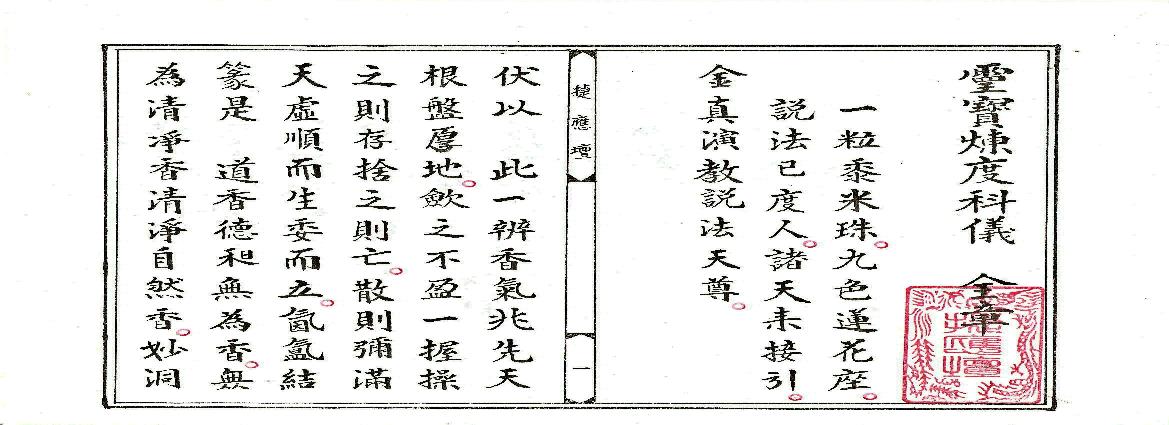 靈寶煉度科儀　全章
一粒黍米珠。九色蓮花座。
説法已度人。諸天来接引。
金真演教説法天尊。
捷應壇
一
伏以　此一辨香氣兆先天
根盤厚地。歛之不盈一握操
之則存捨之則亡。散則彌滿
天虛順而生委而立。氤氳結
篆是　道香德和無為香。無
為清淨香清淨自然香。妙洞